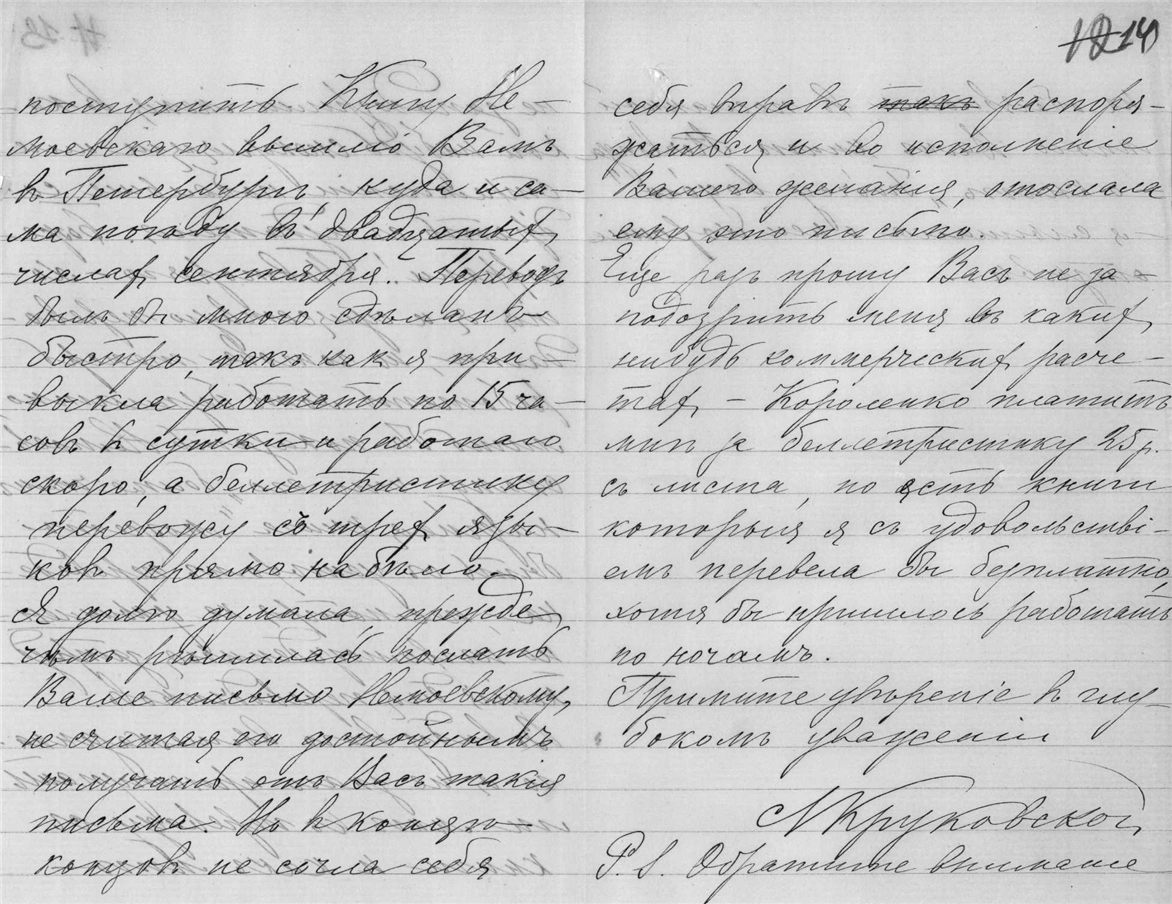 поступить. Книгу Не-
моевскаго вышлю Вамъ
въ Петербургъ, куда и са-
ма поѣду въ двадцатых
числах сентября. Переводъ
былъ бы мною сдѣланъ
быстро, такъ как я при-
выкла работать по 15 ча-
совъ въ сутки и работаю
скоро, а беллетристику
перевожу съ трех язы-
ковъ прямо набѣло.
Я долго думала, прежде
чѣмъ рѣшилась послать
Ваше письмо Немоевскому,
не считая его достойнымъ
получать отъ Васъ такія
письма. Но въ концѣ
концовъ не сочла себя
14
себя вправѣ такъ распоря-
жаться и во исполненіе
Вашего желанія, отослала
ему это письмо.
Еще разъ прошу Васъ не за-
подозрить меня въ каких
нибудь коммерческих расче-
тах, – Короленко платитъ
мнѣ за беллетристику 25 р.
съ листа, но есть книги
которыя я съ удовольстві-
емъ перевела бы безплатно,
хотя бы пришлось работать
по ночамъ.
Примите увѣреніе въ глу-
бокомъ уваженіи
Л Круковской
P.S. Обратите вниманіе